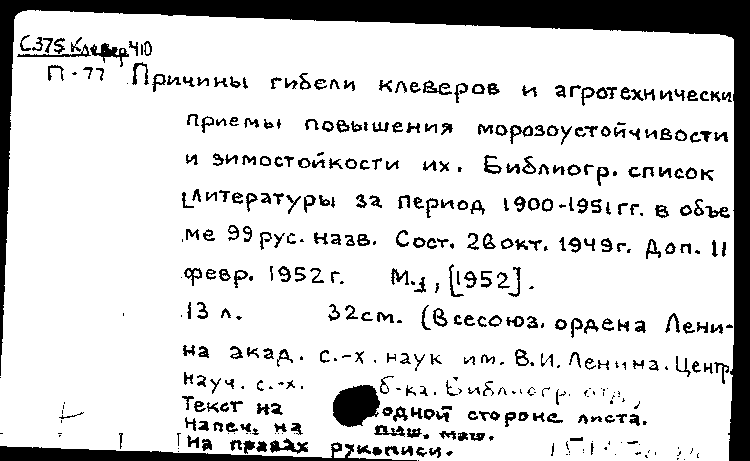 С.375 Клевер 410
П-77 Причины гибели клеверов и агротехнически
приемы повышения морозоустойчивости
и зимостойкости их. Библиогр. список
литературы за период 1900-1951 гг. в объе-
ме 99 рус. назв. Сост. 26 окт. 1949 г. Доп. 11
февр. 1952 г. М., [1952].
13 л. 32 см. (Всесоюз. ордена Лени-
на акад. с.-х. наук им. В.И. Ленина. Центр.
науч. с.-х. б-ка. Библиогр. отд.)
Текст на одной стороне листа.
Напеч. на пиш. маш.
На правах рукописи.